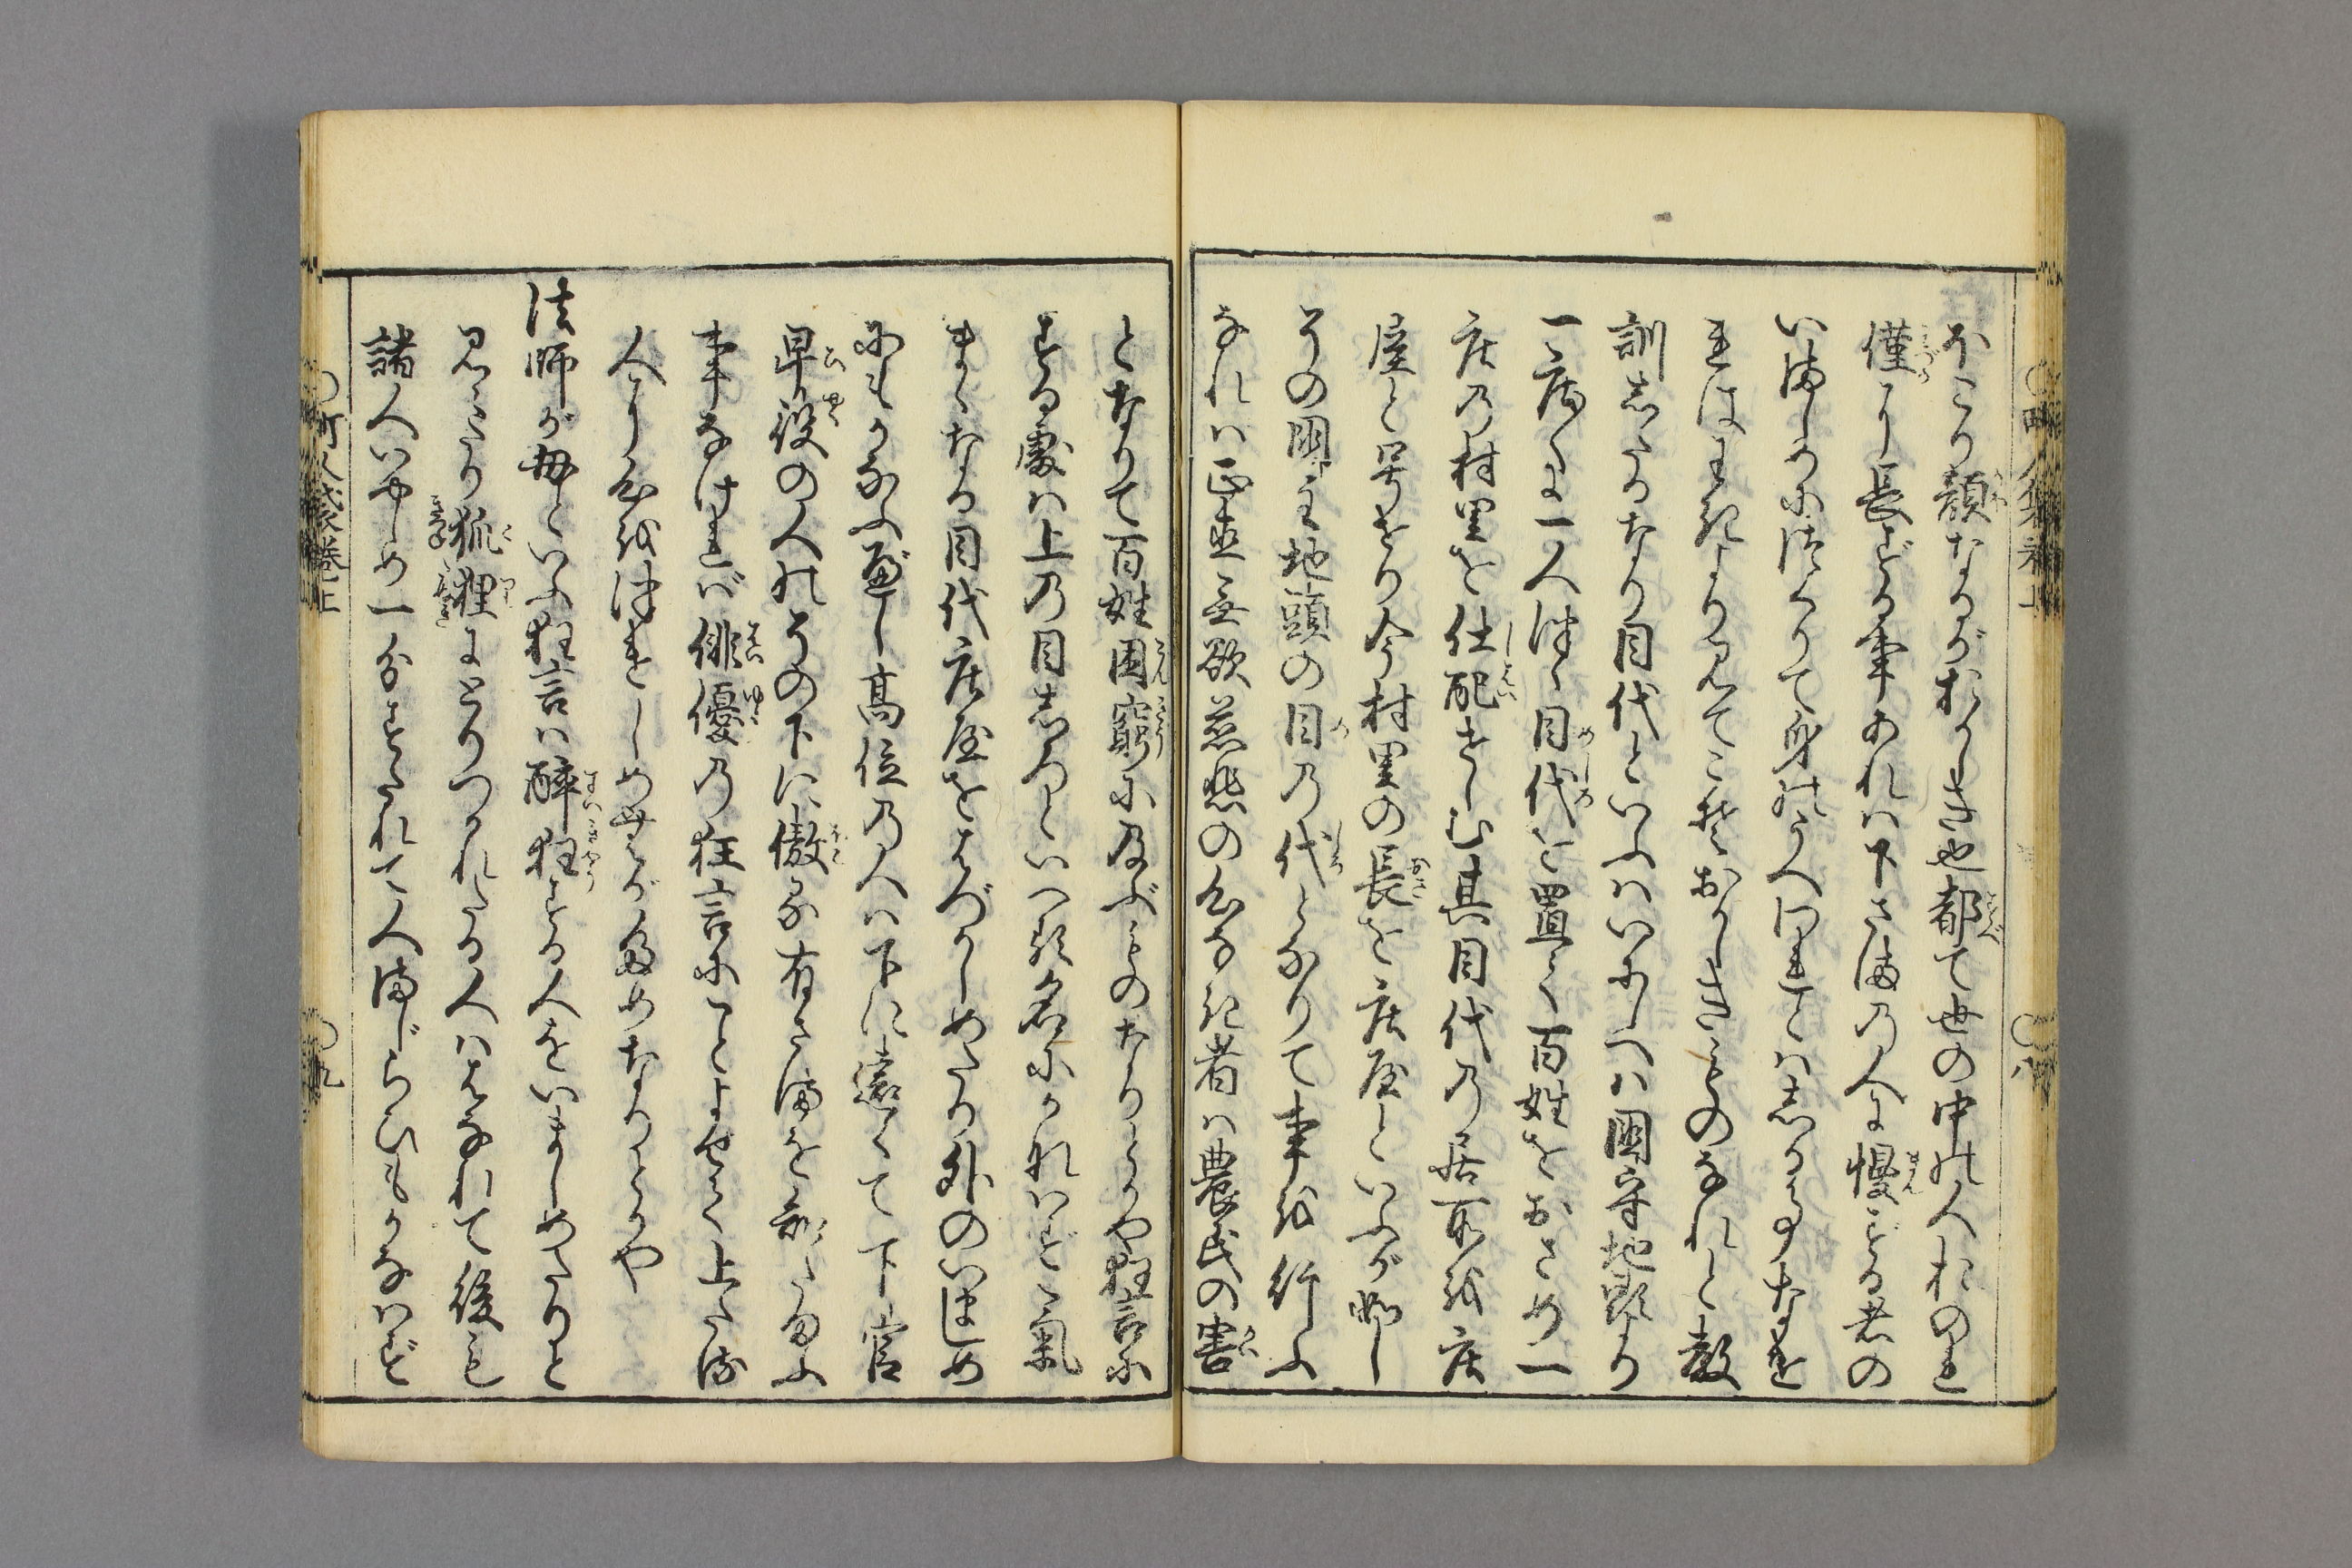 ほこり顔なるがおかしき也都て世の中の人おのれ
僅に長ずる事あれハ下さまの人に慢ずる者の
いましめに作りて身のうへにハしる事なを
教はわきより見てこそおかしきものなれと教
訓したるなり目代といふハいにしへハ国守地頭より
一庄に一人づゝ目代を置て百姓をおさめ一
庄の村里を仕配せしむ其目代の居所を庄
屋と号せり今村里の長を庄屋といふが如し
その国主地頭の目の代となりて事を行ふ
なれハ正直無欲慈悲の心なき者ハ農民の害
となりて百姓困窮に及ぶものなりとかや狂言に
する處ハ上の目しろといへ共名にかなハず氣
まゝなる目代庄屋をはづかしめたり外のいましめ
にもかなふべし高位の人ハ下に遠くて下官
卑役の人のその下に傲る有さまを知たまふ
事なけれバ俳優の狂言にことよせて上たる
人に心を付させしめむがためなりとかや
法師が母といふ狂言ハ酔狂する人をいましめたりと
見えたり狐狸にとりつかれたる人ハはなれて後も
諸人いやしめ一分すたれて人まじらひもかなハず
町人袋巻上
八
九